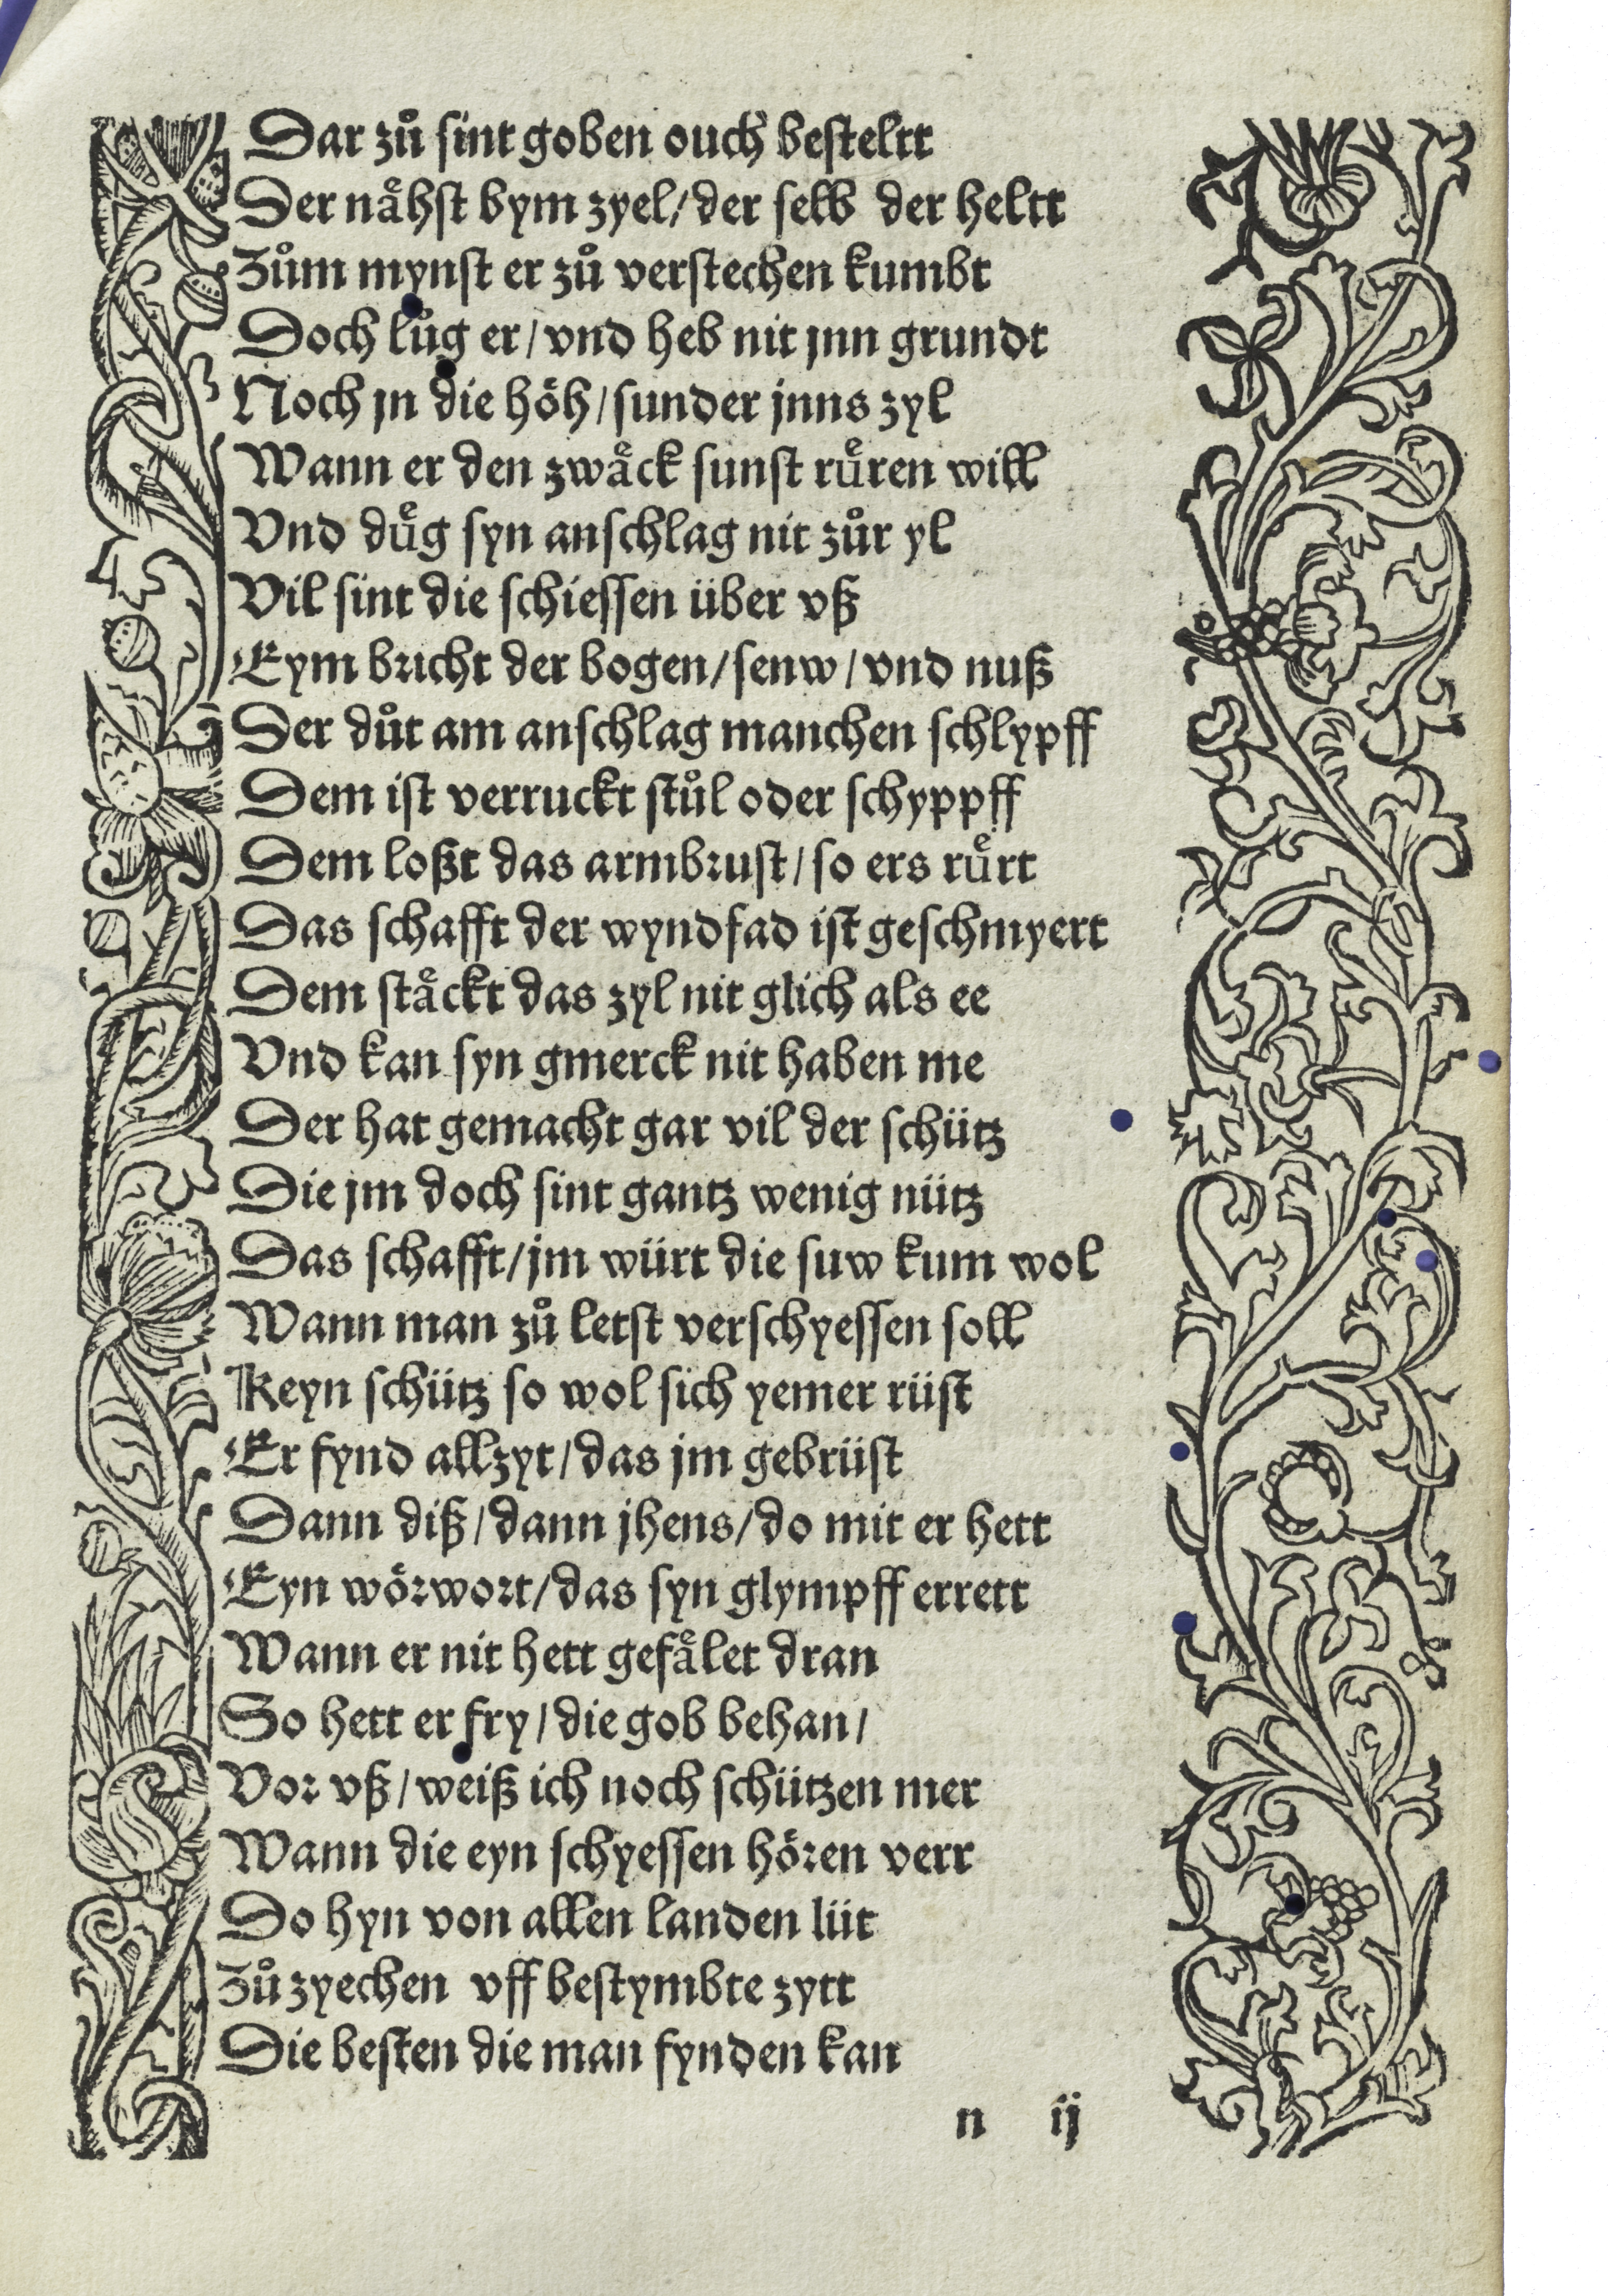 Dar zuͦ sint goben ouch besteltt
Der naͤhst bym zyel/ der selb der heltt
Zuͦm mynst er zuͦ verstechen kumbt
Doch luͦg er/ vnd heb nit jnn grundt
Noch jn die hoͤh/ sunder jnns zyl
Wann er den zwaͤck sunst ruͤren will
Vnd duͤg syn anschlag nit zuͦr yl
Vil sint die schiessen über vß
Eym bricht der bogen/ senw/ vnd nuß
Der duͦt am anschlag manchen schlypff
Dem ist verruckt stuͦl oder schyppff
Dem loßt das armbrust/ so ers ruͤrt
Das schafft der wyndfad ist geschmyert
Dem staͤckt das zyl nit glich als ee
Vnd kan syn gmerck nit haben me
Der hat gemacht gar vil der schütz
Die jm doch sint gantz wenig nütz
Das schafft/ jm würt die suw kum wol
Wann man zuͦ letst verschyessen soll
Keyn schütz so wol sich yemer rüst
Er fynd allzyt/ das jm gebrüst
Dann diß/ dann jhens/ do mit er hett
Eyn woͤrwort/ das syn glympff errett
Wann er nit hett gefaͤlet dran
So hett er fry/ die gob behan/
Vor vß/ weiß ich noch schützen mer
Wann die eyn schyessen hoͤren verr
Do hyn von allen landen lüt
Zuͦ zyechen vff bestymbte zytt
Die besten die man fynden kan
n ij